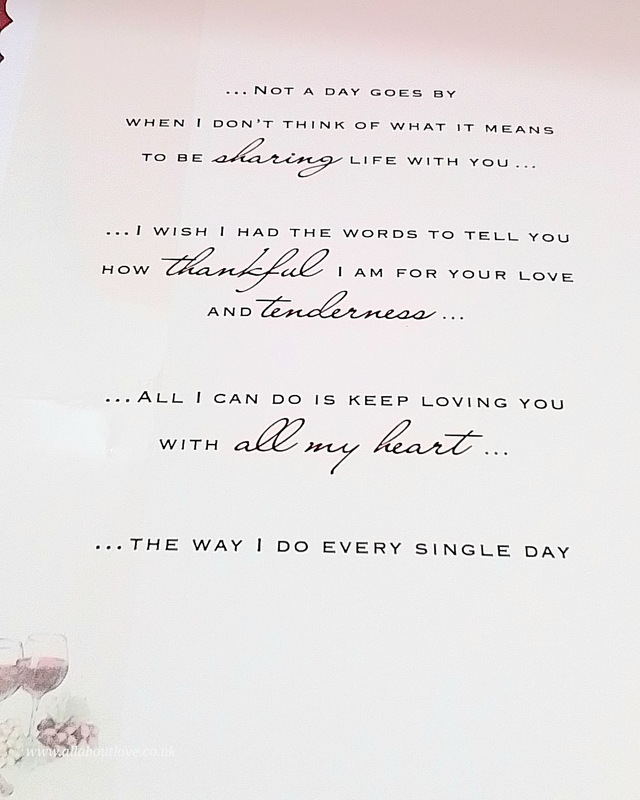 ...NOT A DAY GOES BY
WHEN I DON'T THINK OF WHAT IT MEANS
TO BE sharing LIFE WITH YOU...
...I WISH I HAD THE WORDS TO TELL YOU
HOW thankful I AM FOR YOUR LOVE
AND tenderness...
...ALL I CAN DO IS KEEP LOVING YOU
WITH all my heart...
...THE WAY I DO EVERY SINGLE DAY
www.allaboutlove.co.uk